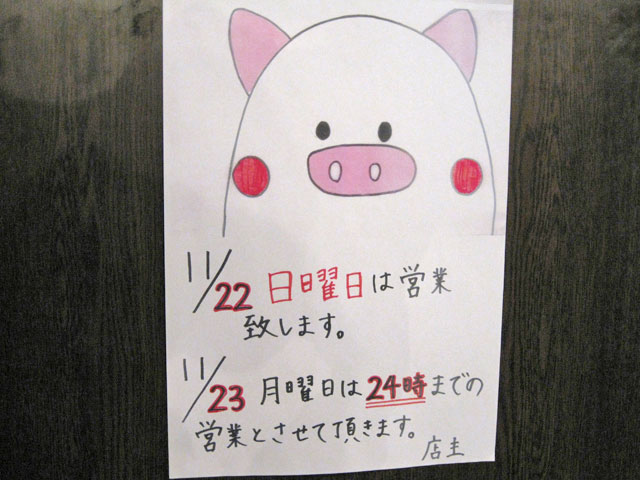 11/22 日曜日は営業
致します。
11/23 月曜日は24時までの
営業とさせて頂きます。
店主